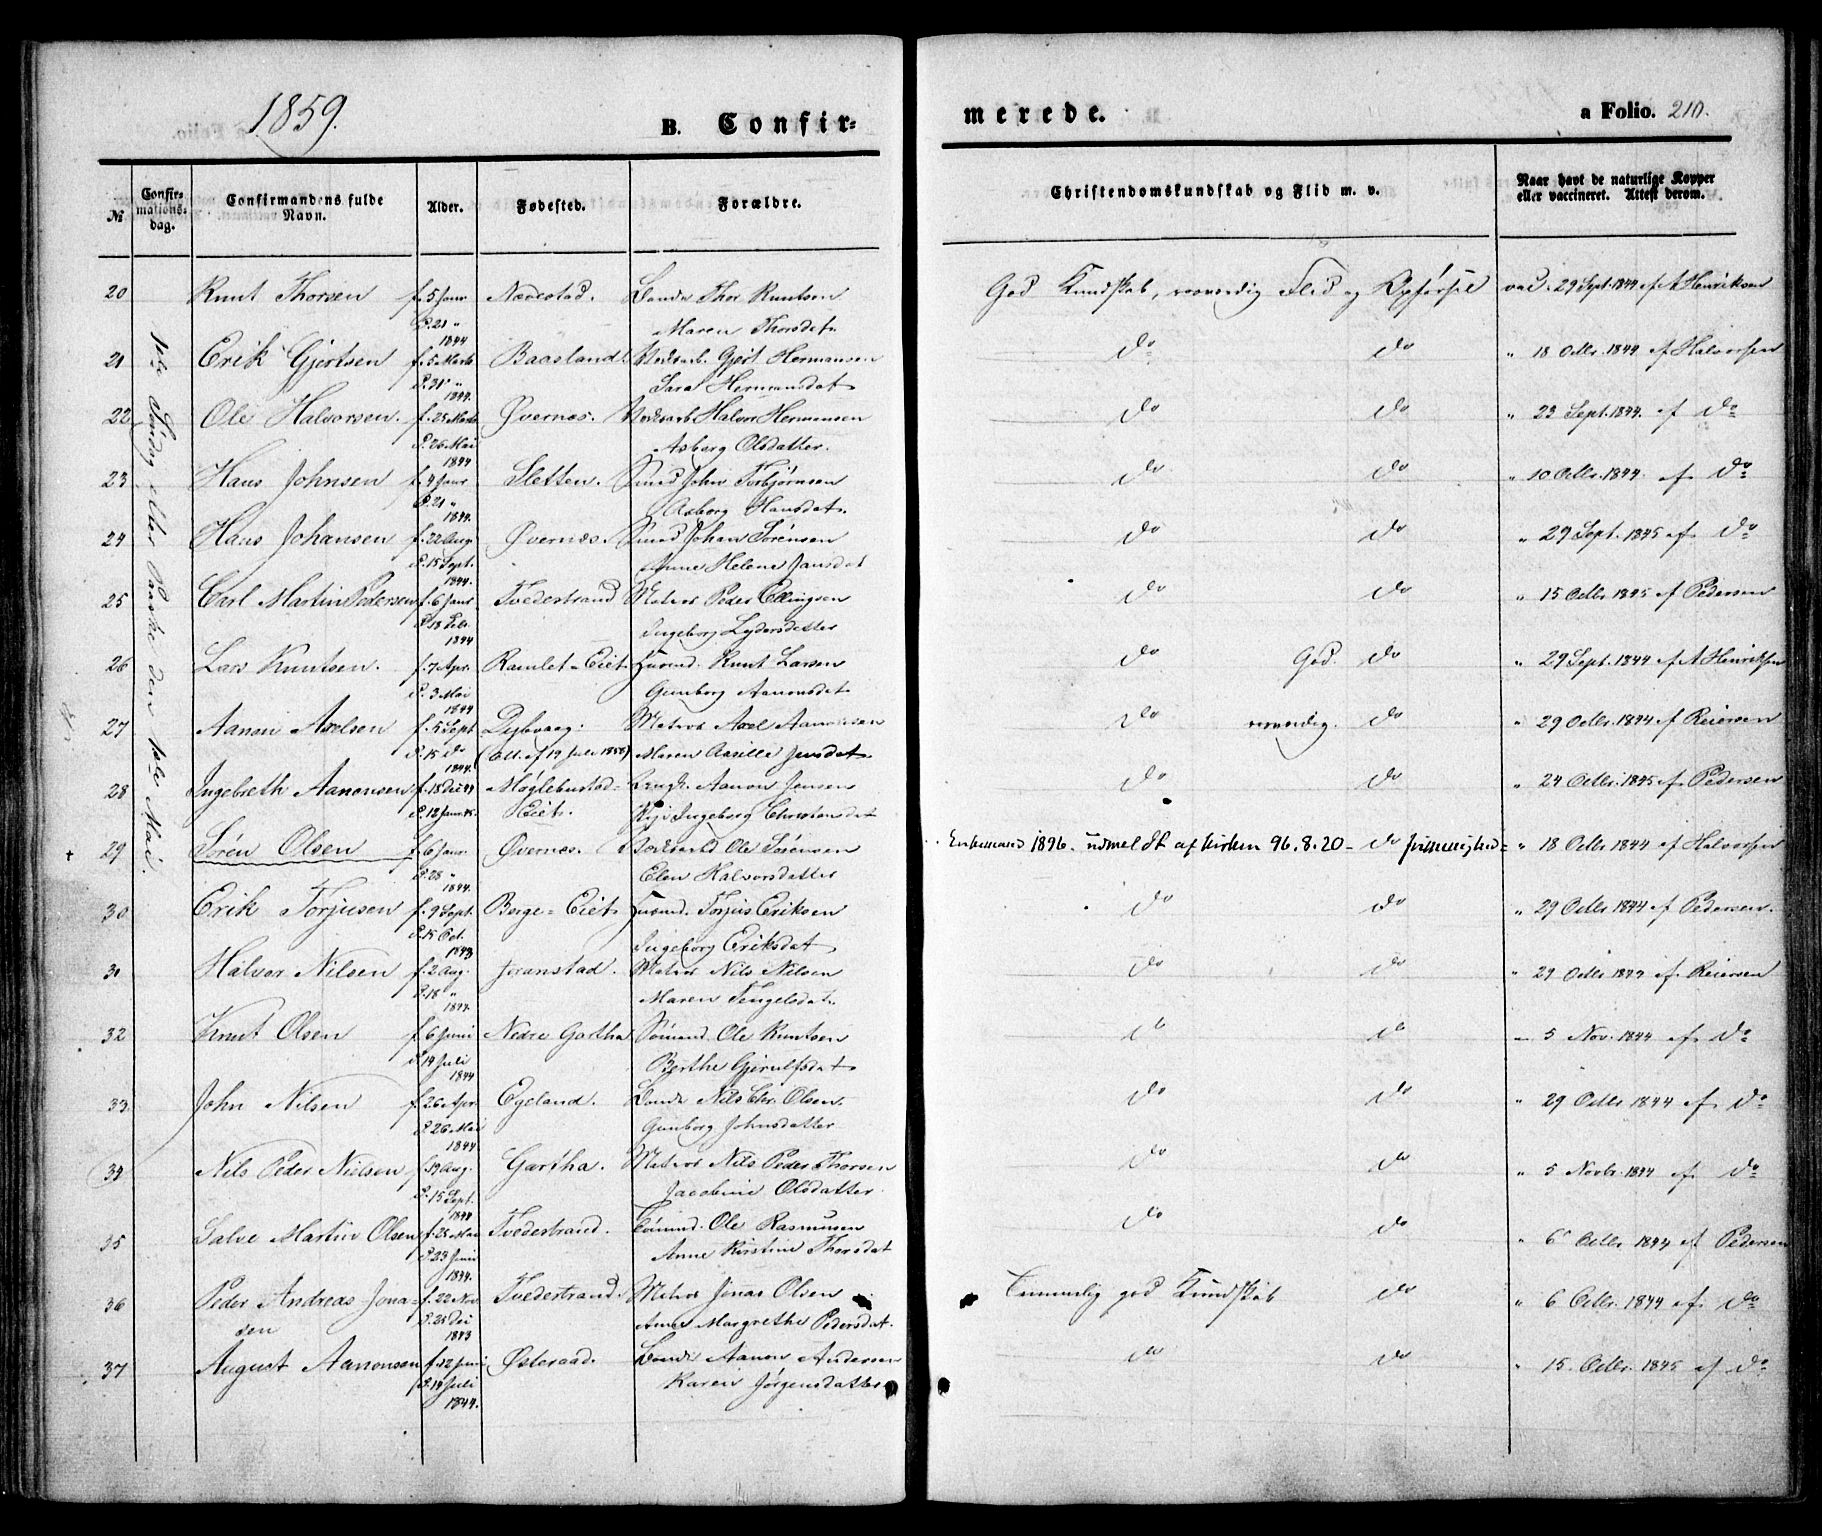 1859.
B. Confirmerede.
a Folio. 210.
№ Confirmationsdag. Confirmandens fulde Navn. Alder. Fødested. Forældre. Christendomskundskab og Flid m. v. Naar havt de naturlige Kopper eller vaccineret. Attest derom.
Søndag efter Paaske den 1ste Mai
20 Knut Thorsen f. 5 Janr Næverstad. Bonde Thor Knutsen God Kundskab, Flid og Opførsel vac. 29 Sept. 1844 af A Henriksen
D. 21 " 1844 Maren Thorsdat.
21 Erik Gjertsen f. 5 Marts Baasland Gjert Hermansen do do " 18 Octbr. 1844. af Halvorsen
D. 31 " 1844. Sara Hermansdat.
22 Ole Halvorsen. f. 25 Marts Øvernes. Halvor Hermansen do do " 23 Sept. 1844. af do
D. 26 Mai 1844 Asberg Olsdatter.
23 Hans Johnsen f. 4 Janr Sletten. Smed John Torbjørnsen do do " 10 Octbr. 1844. af do
D. 21 " 1844. Asborg Hansdat.
24 Hans Johansen f. 22 Aug. Øvernes. Smed Johan Sørensen do do " 29 Sept. 1845 af do
D. 15 Sept. 1844. Anne Helene Jansdat
25 Carl Martin Pedersen f. 6 Janr Tvedestrand Matros Peder Ellingsen do do " 15 Octbr 1845 af Pedersen
D. 18 Feb. 1844 Ingeborg Lydersdatter
26 Lars Knutsen. f. 7 Apr. Ramlet-Eiet. Huusmd. Knut Larsen do God. do " 29 Sept. 1844 af A Henriksen
D. 3 Mai 1844 Gunborg Aanonsdat
27 Aanon Axelsen f. 5 Sept Dybvaag: Matros Axel Aanonsen do do " 29 Octbr 1844 af Reiersen
D. 15 do 1844. (Att. af 19 Juli 1858) Maren Jensdat.
28 Ingebreth Aanonsen f. 18 Dec 44 Møglebustad= Aanon Jensen do do " 24 Octbr 1845 af Pedersen
D. 12 Janr. 45. Eiet. Ingeborg Christensdat
29 Søren Olsen f. 6 Janr Øvernes. Ole Sørensen 1896. udmeldt af Kirken 96.8.20 - do " 18 Octbr 1844 af Halvorsen
D. 28 " 1844. Elen Halvorsdatter
30 Erik Torjusen f. 9 Sept. Berge-Eiet Huusmd. Torjus Eriksen do do " 29 Octbr 1844 af Pedersen.
D. 15 Oct. 1843 Ingeborg Eriksdat
31 Halvor Nilsen f. 2 Aug. Joranstad. Matros Nils Nilsen do do " 29 Octbr 1844 af Reiersen
D. 18 " 1844. Maren Tengelsdat.
32 Knut Olsen f. 6 Juni Nedre Gartha Sømand. Ole Knutsen do do " 5 Nov. 1844 af do
D. 14 Juli 1844 Berthe Gjerulfsdat
33 John Nilsen f. 26 Apr. Egeland. Bonde Nils Chr. Olsen. do do " 29 Octbr 1844 af do
D. 26 Mai 1844 Gunborg Johnsdatter
34 Nils Peder Nielsen f. 19 Aug. Gartha. Matros Nils Peder Thorsen do do " 5 Novbr. 1844 af do
D. 15 Sept. 1844 Jacobine Olsdatter
35 Salve Martin Olsen f. 25 Mai Tvedestrand. Sømand. Ole Rasmusen do do " 6 Octbr 1844 af Pedersen
D. 23 Juni 1844. Anne Kirstine Thorsdat
36 Peder Andreas Jona= f. 22 Nov Tvedestrand. Matros Jonas Olsen Temmelig god Kundskab do " 6 Octbr 1844 af do
sen D. 25 Dec 1843 Anne Margrethe Pedersdat.
37 August Aanonsen f. 12 Juni Østeraad. Bonde Aanon Andersen do do " 15. Octbr. 1845 af do
D. 14 Juli 1844. Karen Jørgensdatter